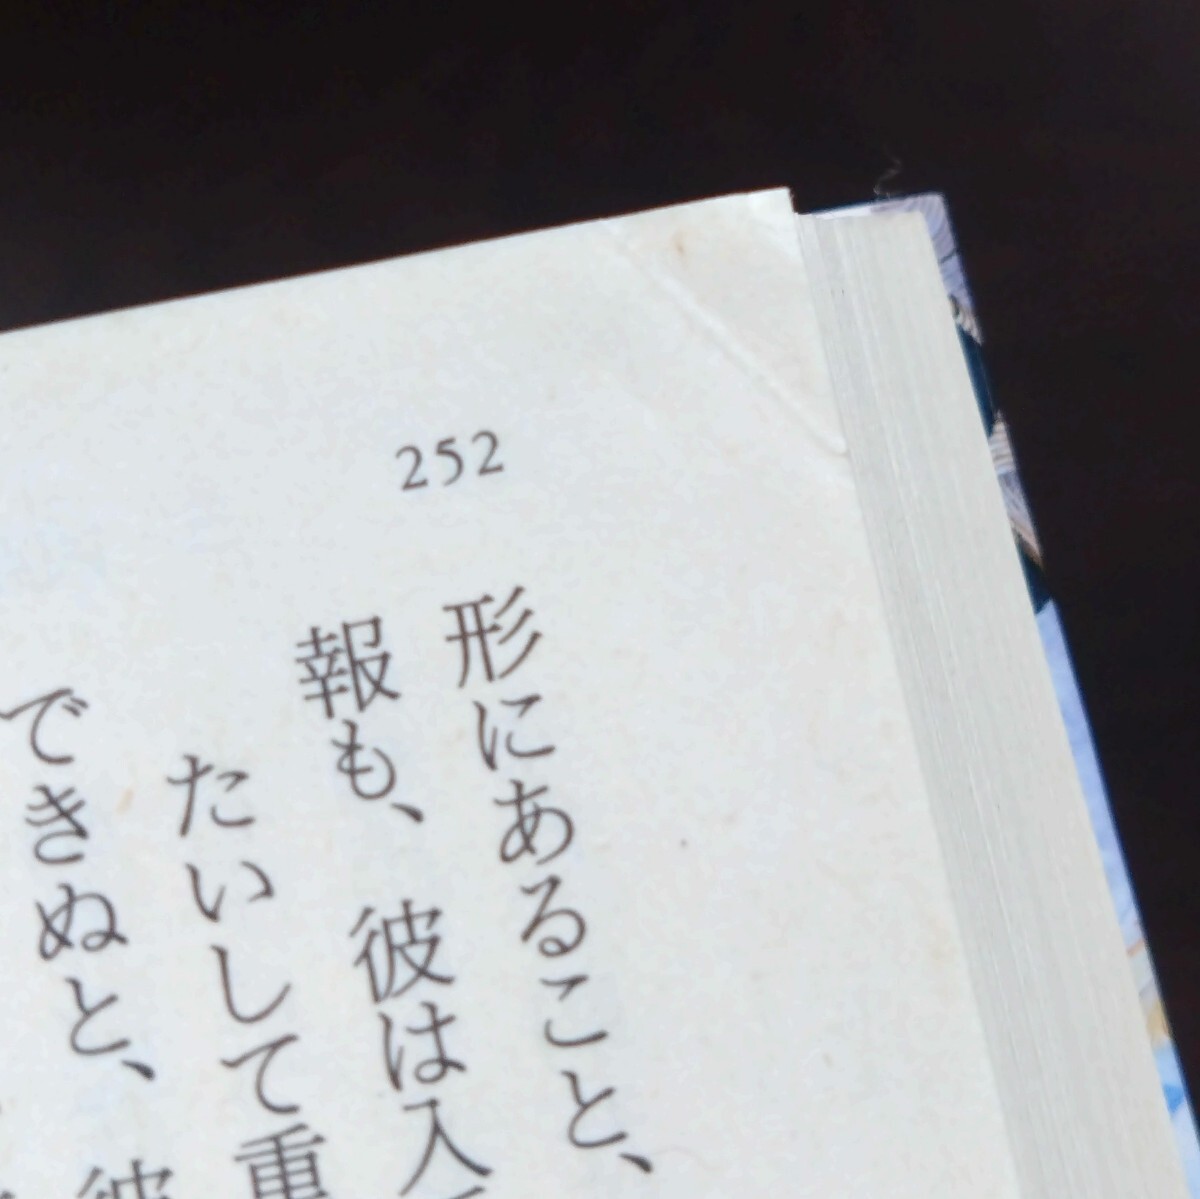 252
形にあること、
報も、彼は入
たいして重
できぬと、彼